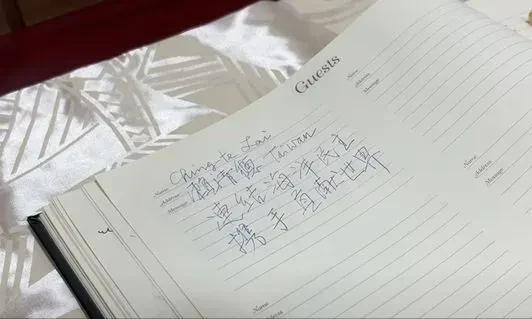 Guests
Name
Ching-te Lai
Address
賴清德 Taiwan
Message
連結海洋民主
攜手貢獻世界
Name
Address
Message
Name
Address
Message
Name
Address